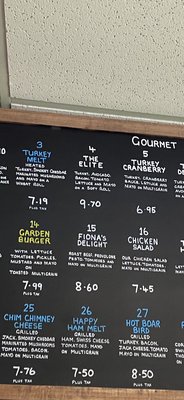 GOURMET
3
TURKEY
MELT
HEATED
TURKEY, SMOKEY CHEDDAR
MARINATED MUSHROOMS
AND MAYO ON A
WHEAT ROLL
7.19
PLUS TAX
4
THE
ELITE
TURKEY, AVOCADO,
BACON, TOMATO
LETTUCE AND MAYO
ON A SOFT ROLL
9.70
5
TURKEY
CRANBERRY
TURKEY, CRANBERRY
SAUCE, LETTUCE AND
MAYO ON MULTIGRAIN
6.95
14
GARDEN
BURGER
WITH LETTUCE
TOMATOES, PICKLES,
MUSTARD AND MAYO
ON TOASTED
MULTIGRAIN
7.99
PLUS TAX
15
FIONA'S
DELIGHT
ROAST BEEF, PROVOLONE
PESTO, TOMATOES AND
MAYO ON MULTIGRAIN
8.60
16
CHICKEN
SALAD
OUR CHICKEN SALAD
LETTUCE, TOMATOES,
MAYO ON MULTIGRAIN
7.45
25
CHIM CHIMNEY
CHEESE
GRILLED
JACK, SMOKEY CHEDDAR
MARINATED MUSHROOMS
TOMATOES, BACON,
MAYO ON MULTIGRAIN
7.76
PLUS TAX
26
HAPPY
HAM MELT
GRILLED
HAM, SWISS CHEESE
TOMATOES, MAYO
ON MULTIGRAIN
7.50
PLUS TAX
27
HOT BOAR
BIRD
GRILLED
TURKEY, BACON, TOMATO
JACK CHEESE,
MAYO ON MULTIGRAIN
8.50
PLUS TAX